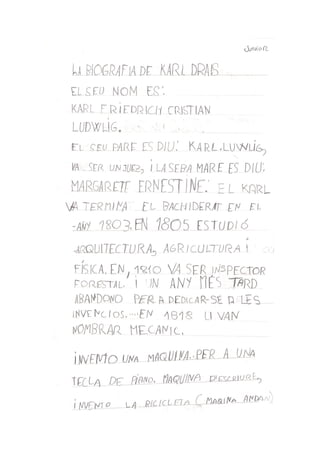 LA BIOGRAFIA DE KARL DRAIS
EL SEU NOM ES:
KARL FRIEDRICH CRISTIAN
LUDWIG.
EL SEU PARE ES DIU: KARL.LUWIG,
VA SER UN JUEZ, I LA SEBA MARE ES DIU:
MARGARETE ERNESTINE. EL KARL
VA TERMINA EL BACHIDERAT EN EL
ANY 1803. EN 1805 ESTUDIÓ
ARQUITECTURA, AGRICULTURA I
FÍSICA. EN, 1810 VA SER INSPECTOR
FORESTAL I IN ANY MÉS TARD
ABANDONO PER A DEDICAR-SE A LES
INVENCIOS. EN 1818 LI VAN
NOMBRAR MECANIC.
INVENTO UNA MAQUINA PER A UNA
TECLA DE PIANO, MAQUINA D'ESCRIURE,
INVENTO LA BICICLETA (MAQINA ANDAN)